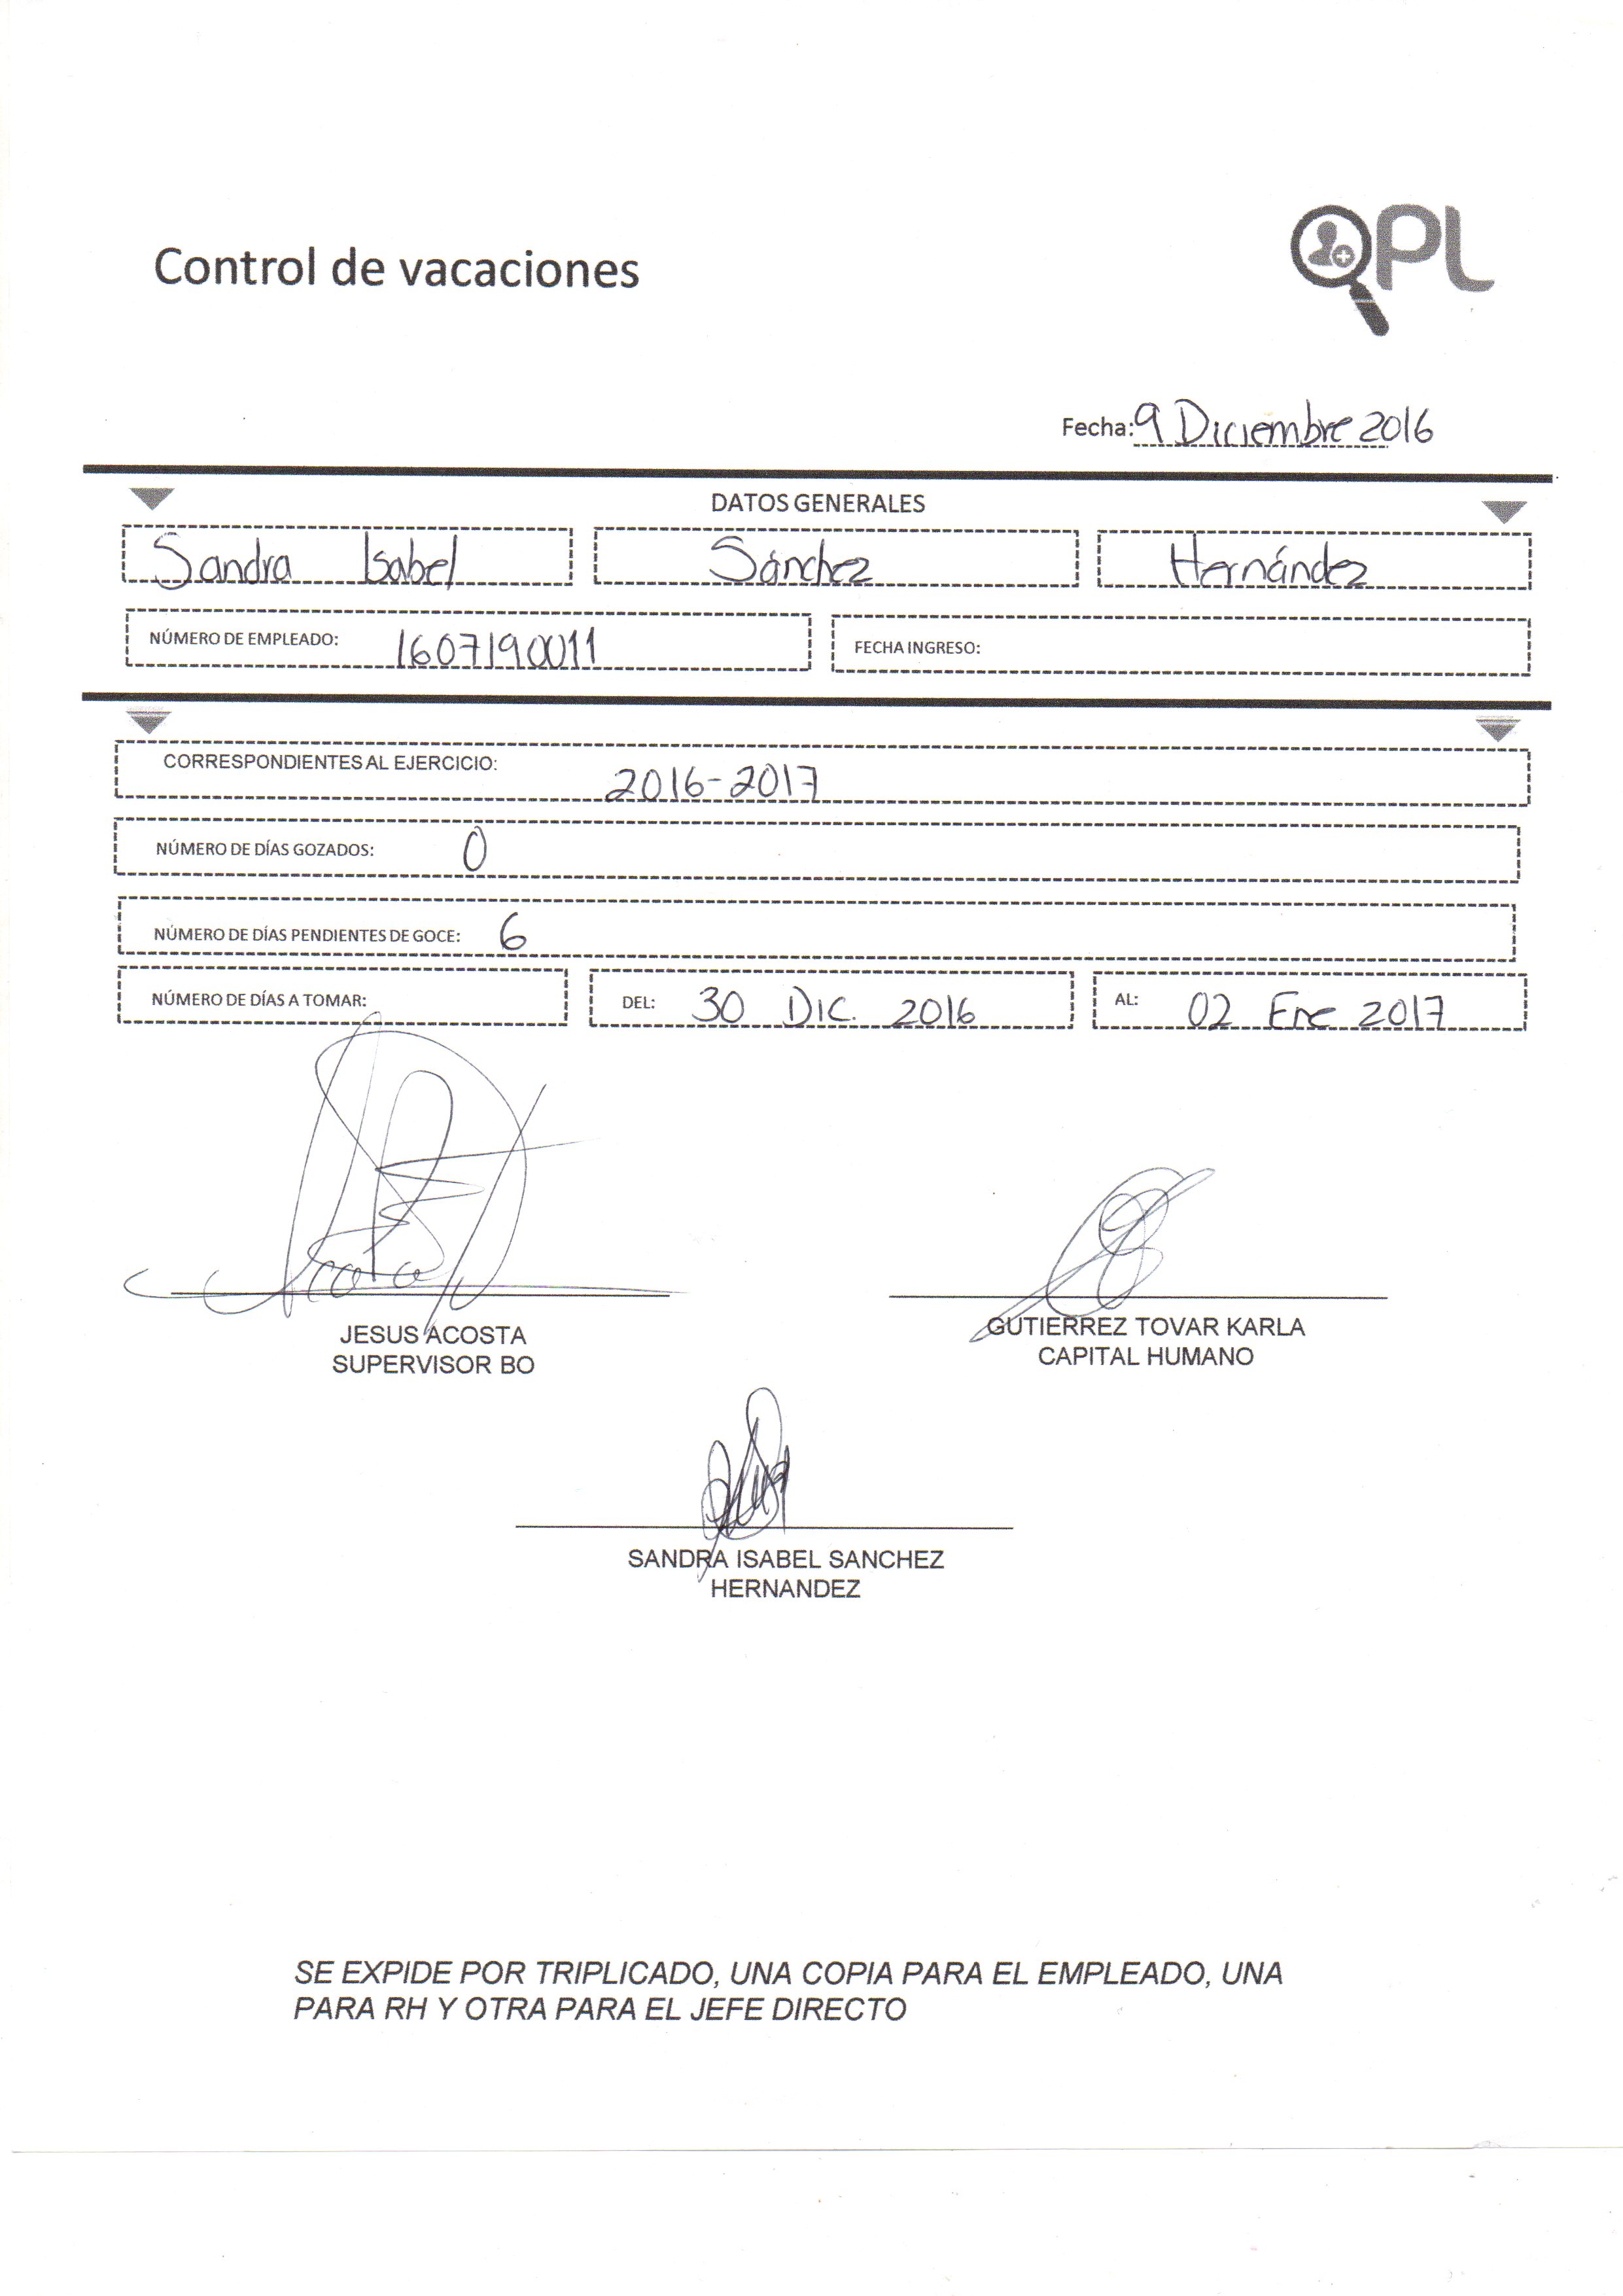 QPL
Control de vacaciones
Fecha: 9 Diciembre 2016
DATOS GENERALES
Sandra Isabel Sánchez Hernández
NÚMERO DE EMPLEADO: 1607190011 FECHA INGRESO:
CORRESPONDIENTES AL EJERCICIO: 2016-2017
NÚMERO DE DÍAS GOZADOS: 0
NÚMERO DE DÍAS PENDIENTES DE GOCE: 6
NÚMERO DE DÍAS A TOMAR: DEL: 30 Dic. 2016 AL: 02 Ene 2017
JESUS ACOSTA GUTIERREZ TOVAR KARLA
SUPERVISOR BO CAPITAL HUMANO
SANDRA ISABEL SANCHEZ
HERNANDEZ
SE EXPIDE POR TRIPLICADO, UNA COPIA PARA EL EMPLEADO, UNA
PARA RH Y OTRA PARA EL JEFE DIRECTO